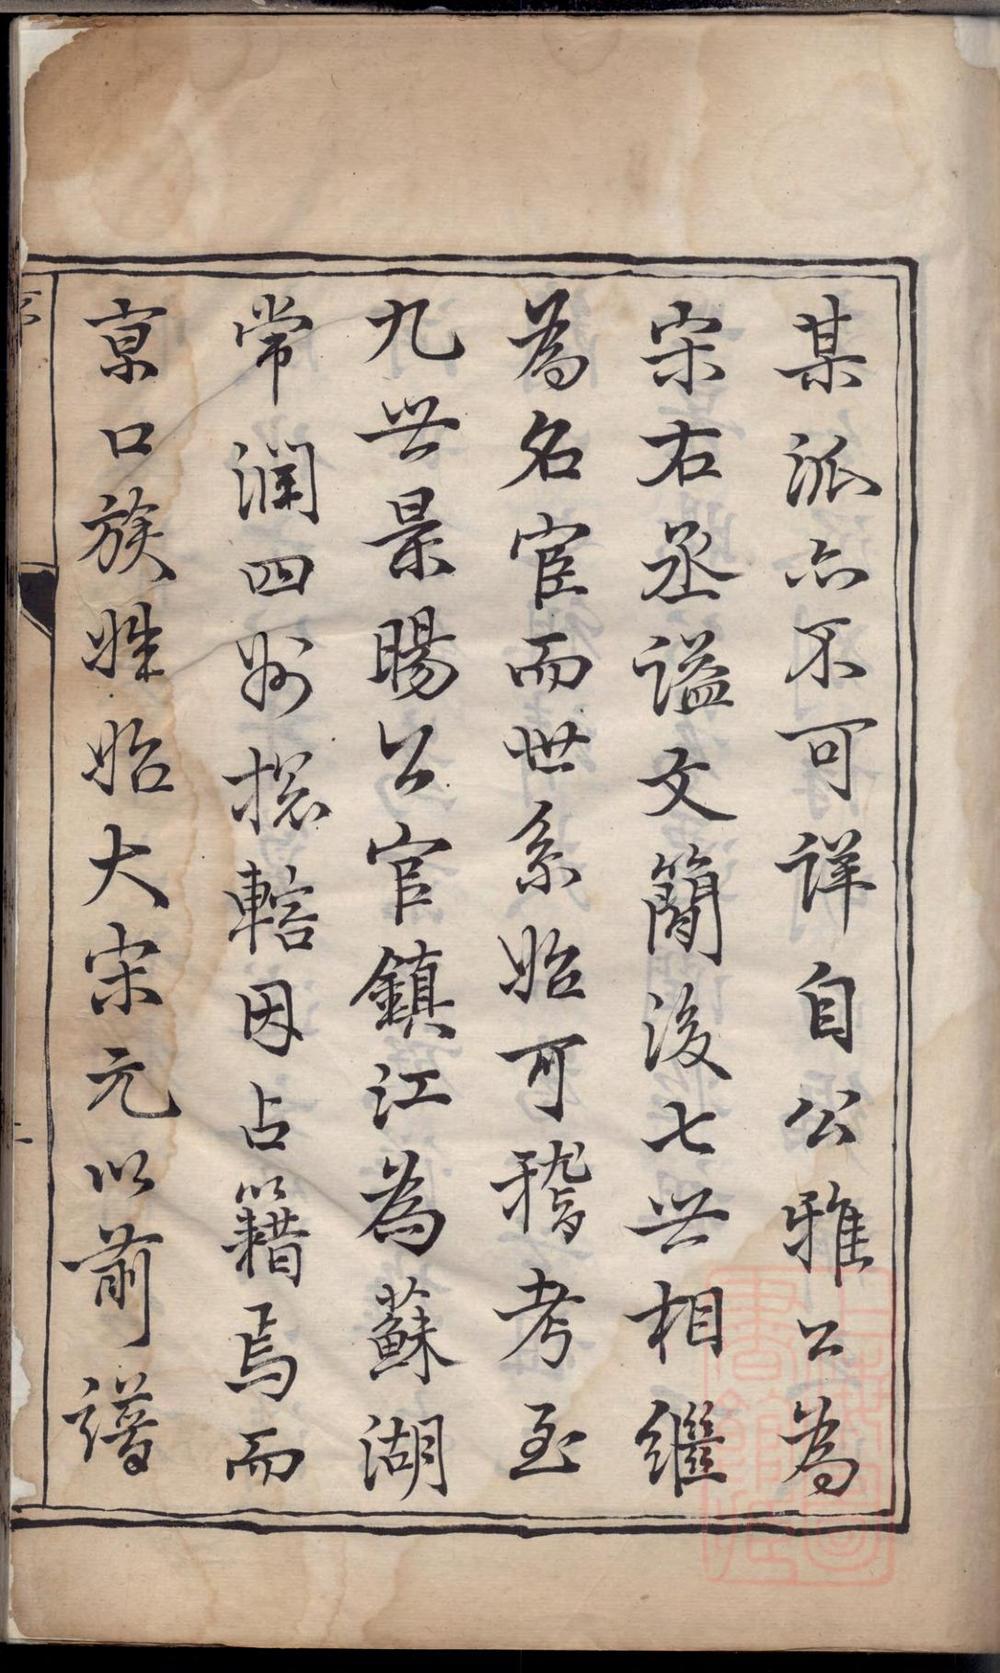 某派亦不可詳自公雅公為
宋右丞謚文簡後七世相繼
為名宦而世系始可稽考至
九世景暘公官鎮江為蘇湖
常潤四州總轄因占籍焉而
京口族姓始大宋元以前譜